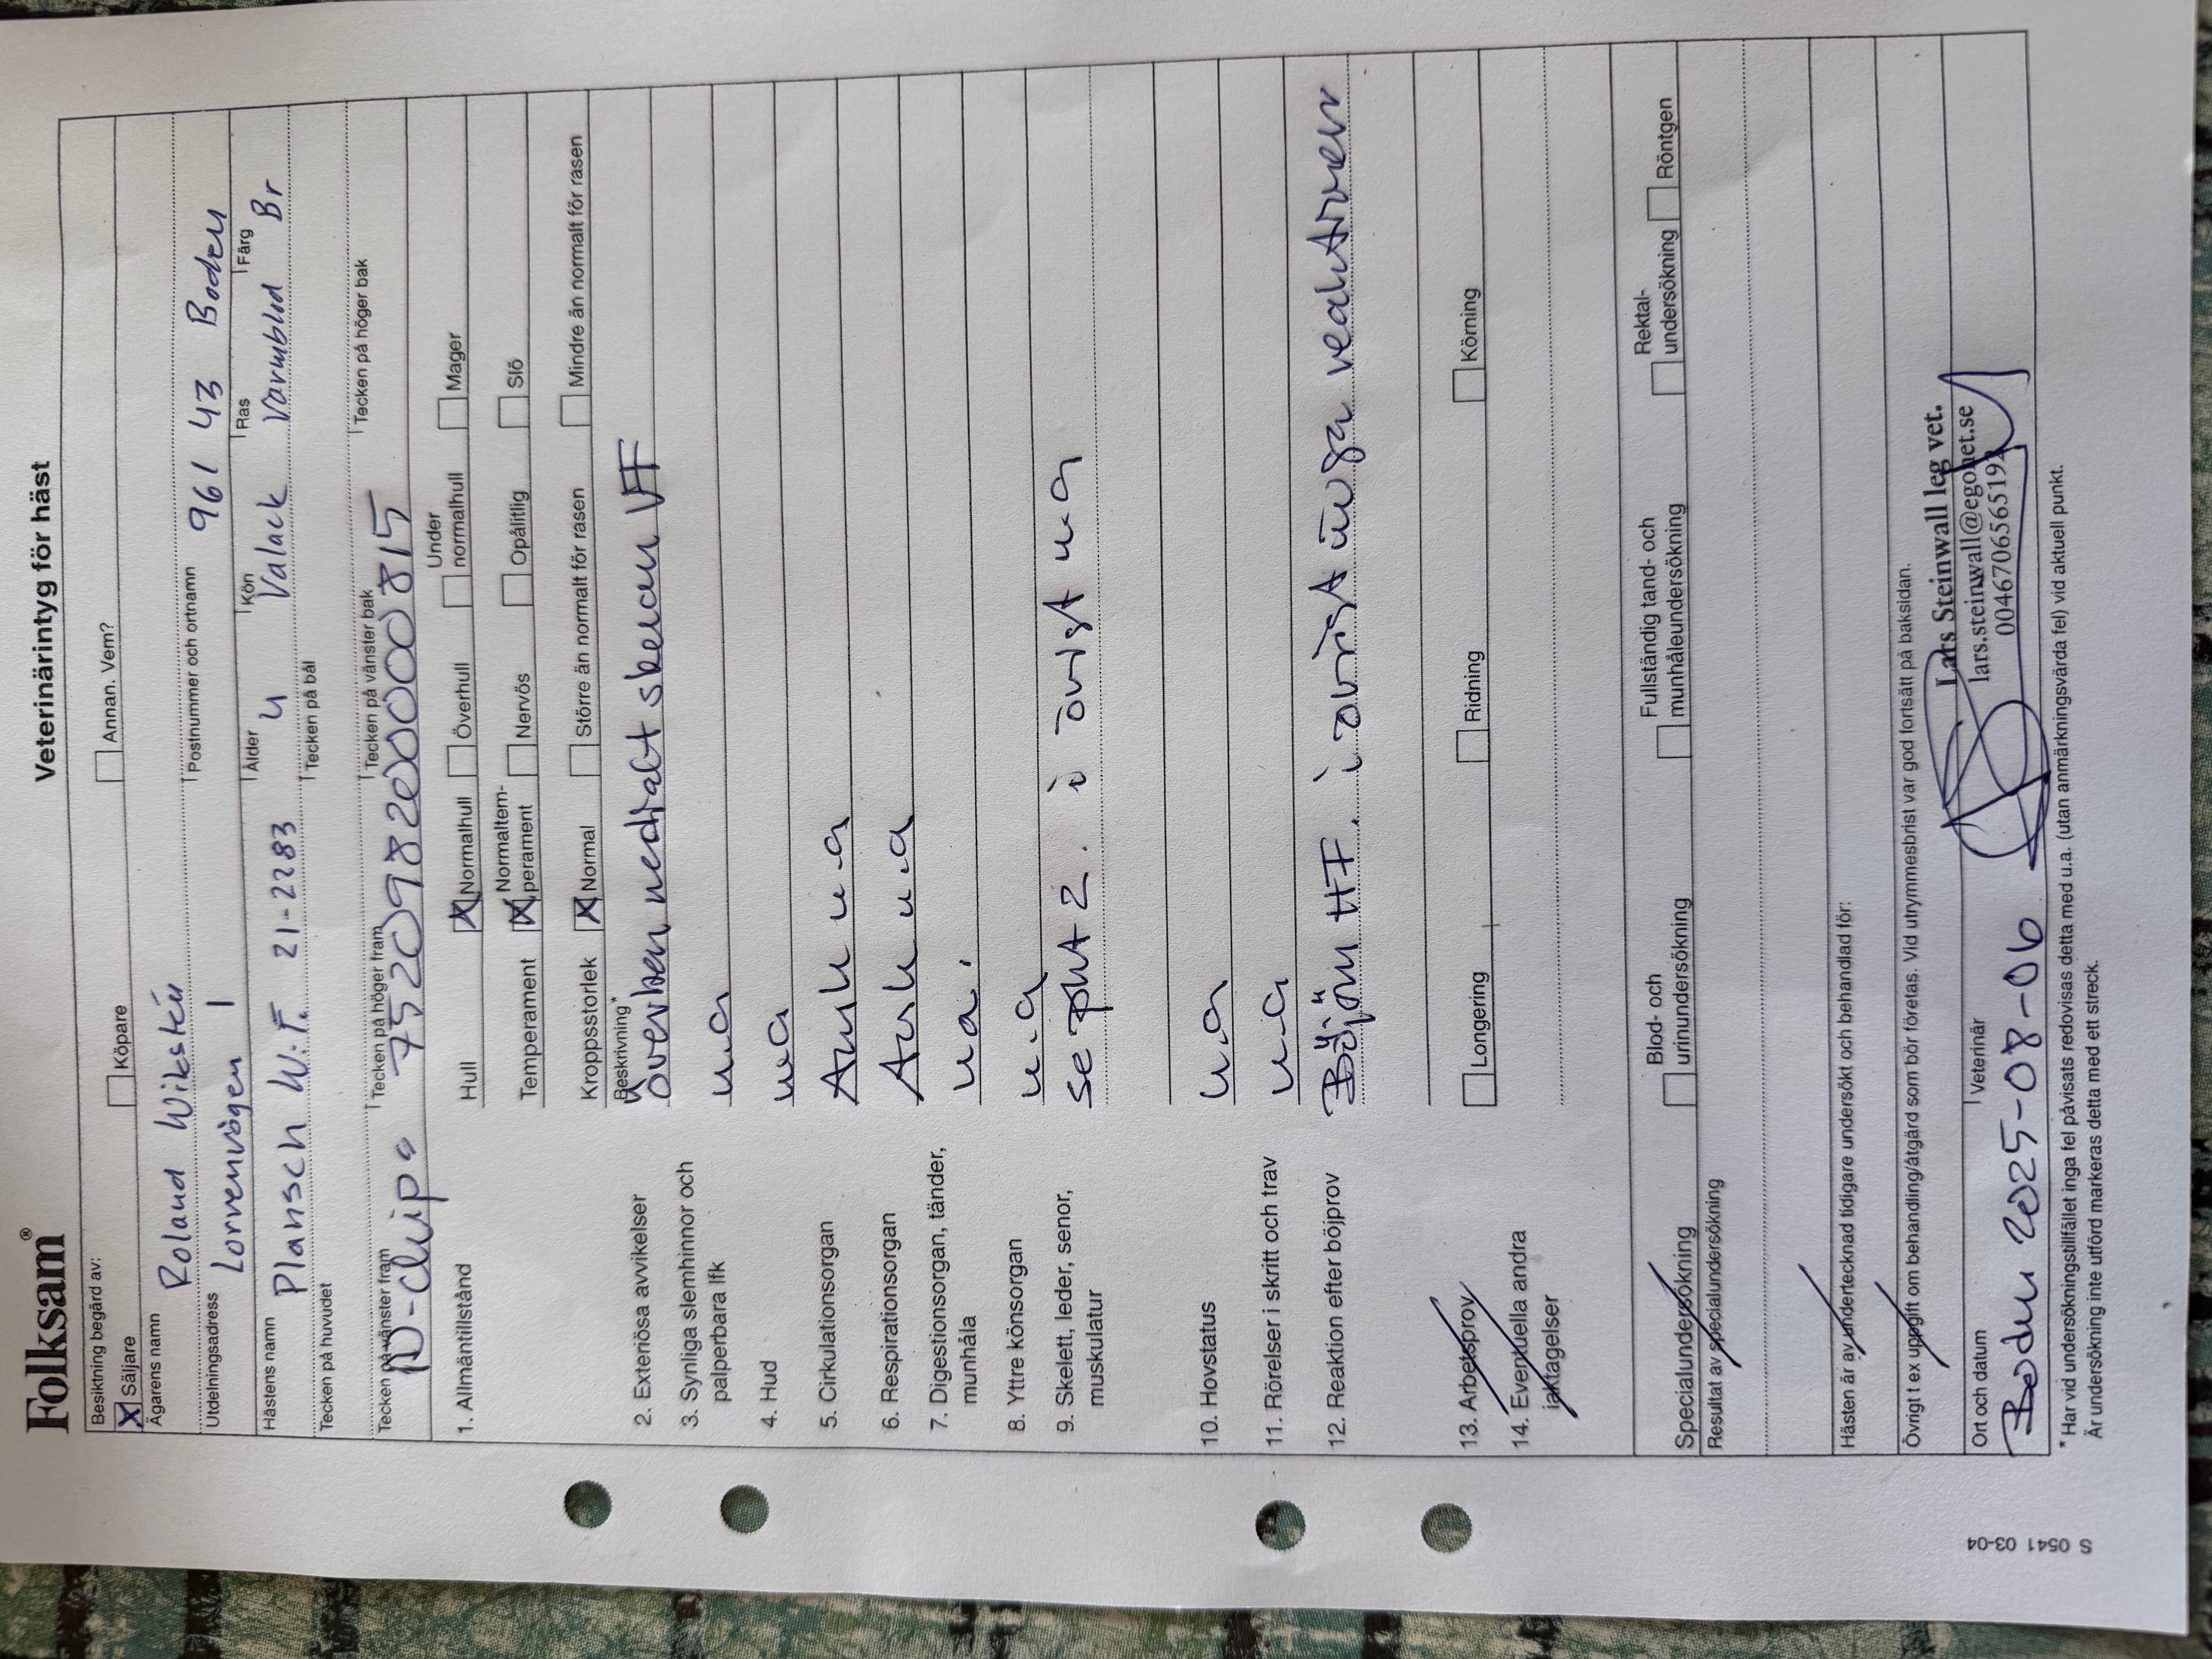 Folksam®
Veterinärintyg för häst
Besiktning begärd av:
X Säljare Köpare Annan. Vem?
Ägarens namn
Roland Wikstén
Utdelningsadress Postnummer och ortnamn
Lorvenvägen 1 961 43 Boden
Hästens namn Ålder Kön Ras Färg
Plansch W.F. 21-2283 4 Valack Varmblod Br
Tecken på huvudet Tecken på bål
Tecken på vänster fram Tecken på höger fram Tecken på vänster bak Tecken på höger bak
ID-chip 752098200000815
1. Allmäntillstånd Hull X Normalhull Överhull Under normalhull Mager
Temperament X Normaltemperament Nervös Opålitlig Slö
Kroppsstorlek X Normal Större än normalt för rasen Mindre än normalt för rasen
Beskrivning*
2. Exteriösa avvikelser överben medialt skenan VF
3. Synliga slemhinnor och palperbara lfk u.a
4. Hud u.a
5. Cirkulationsorgan Ausk u.a
6. Respirationsorgan Ausk u.a
7. Digestionsorgan, tänder, munhåla u.a.
8. Yttre könsorgan u.a
9. Skelett, leder, senor, muskulatur se pkt 2. i övrigt u a
10. Hovstatus u.a
11. Rörelser i skritt och trav u.a
12. Reaktion efter böjprov Böjöm HF. i övrigt inga reaktioner
13. Arbetsprov Longering Ridning Körning
14. Eventuella andra iakttagelser
Specialundersökning Blod- och urinundersökning Fullständig tand- och munhåleundersökning Rektal-undersökning Röntgen
Resultat av specialundersökning
Hästen är av undertecknad tidigare undersökt och behandlad för:
Övrigt t ex uppgift om behandling/åtgärd som bör företas. Vid utrymmesbrist var god fortsätt på baksidan.
Ort och datum Veterinär
Boden 2025-08-06
Lars Steinwall leg vet.
lars.steinwall@egonet.se
* Har vid undersökningstillfället inga fel påvisats redovisas detta med u.a. (utan anmärkningsvärda fel) vid aktuell punkt.
Är undersökning inte utförd markeras detta med ett streck.
S 0541 03-04